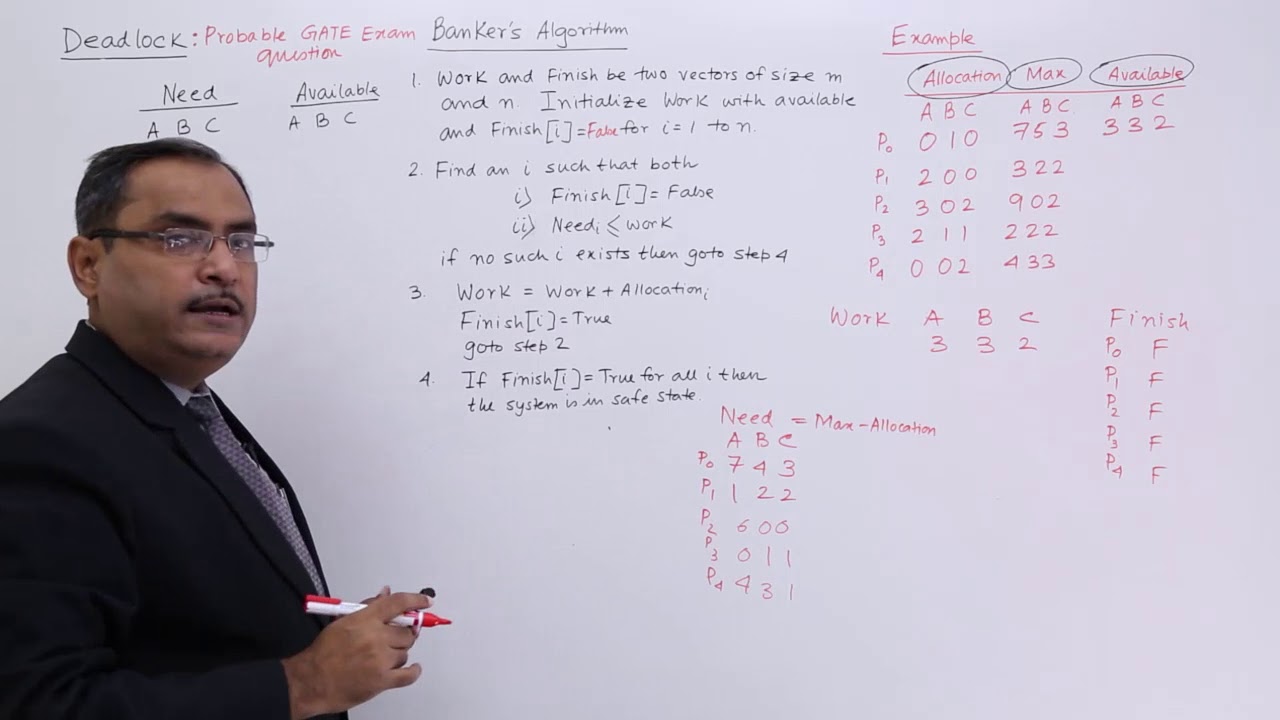 Deadlock : Probable GATE Exam question
Need
A B C
Available
A B C
Banker's Algorithm
1. Work and Finish be two vectors of size m
and n. Initialize Work with available
and Finish[i]=False for i=1 to n.
2. Find an i such that both
i) Finish[i]=False
ii) Needi ≤ work
if no such i exists then goto step 4
3. Work = Work + Allocationi
Finish[i]=True
goto step 2
4. If Finish[i]=True for all i then
the system is in safe state.
Example
Allocation Max Available
A B C A B C A B C
P0 0 1 0 7 5 3 3 3 2
P1 2 0 0 3 2 2
P2 3 0 2 9 0 2
P3 2 1 1 2 2 2
P4 0 0 2 4 3 3
Work A B C
3 3 2
Finish
P0 F
P1 F
P2 F
P3 F
P4 F
Need = Max - Allocation
A B C
P0 7 4 3
P1 1 2 2
P2 6 0 0
P3 0 1 1
P4 4 3 1